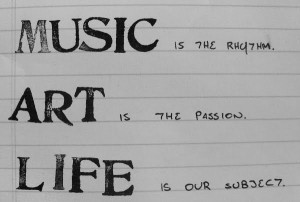 MUSIC IS THE RHYTHM.
ART IS THE PASSION.
LIFE IS OUR SUBJECT.